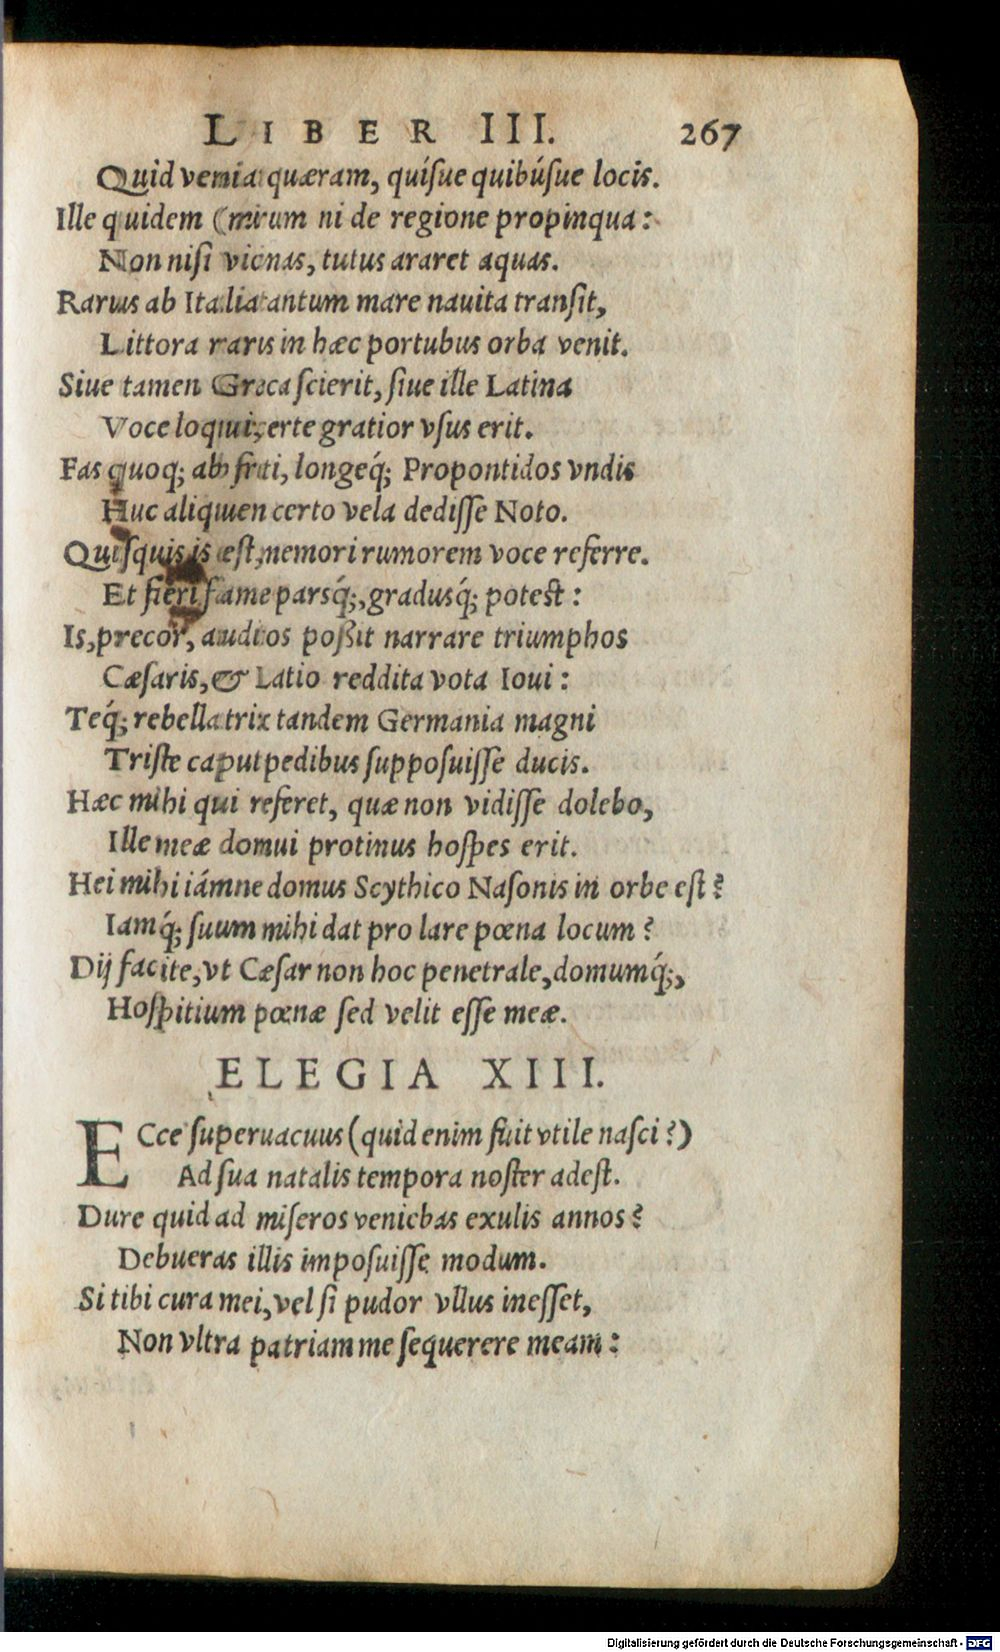 LIBER III. 267
Quid venia quæram, quísue quibúsue locis.
Ille quidem (mirum ni de regione propinqua:
Non nisi vicnas, tutus araret aquas.
Rarus ab Italia tantum mare nauita transit,
Littora raris in hæc portubus orba venit.
Siue tamen Græca scierit, siue ille Latina
Voce loqui, certe gratior vsus erit.
Fas quoq; ab freti, longeq́; Propontidos vndis
Huc aliquem certo vela dedisse Noto.
Quisquis is est, memori rumorem voce referre.
Et fieri fame parsq́;, gradusq́; potest:
Is, precor, auditos poßit narrare triumphos
Cæsaris, & Latio reddita vota Ioui:
Teq́; rebellatrix tandem Germania magni
Triste caput pedibus supposuisse ducis.
Hæc mihi qui referet, quæ non vidisse dolebo,
Ille meæ domui protinus hospes erit.
Hei mihi iámne domus Scythico Nasonis in orbe est?
Iamq́; suum mihi dat pro lare pœna locum?
Dij facite, vt Cæsar non hoc penetrale, domumq́;,
Hospitium pœnæ sed velit esse meæ.
ELEGIA XIII.
ECce superuacuus (quid enim fuit vtile nasci?)
Ad sua natalis tempora noster adest.
Dure quid ad miseros veniebas exulis annos?
Debueras illis imposuisse modum.
Si tibi cura mei, vel si pudor vllus inesset,
Non vltra patriam me sequerere meam:
Digitalisierung gefördert durch die Deutsche Forschungsgemeinschaft - DFG